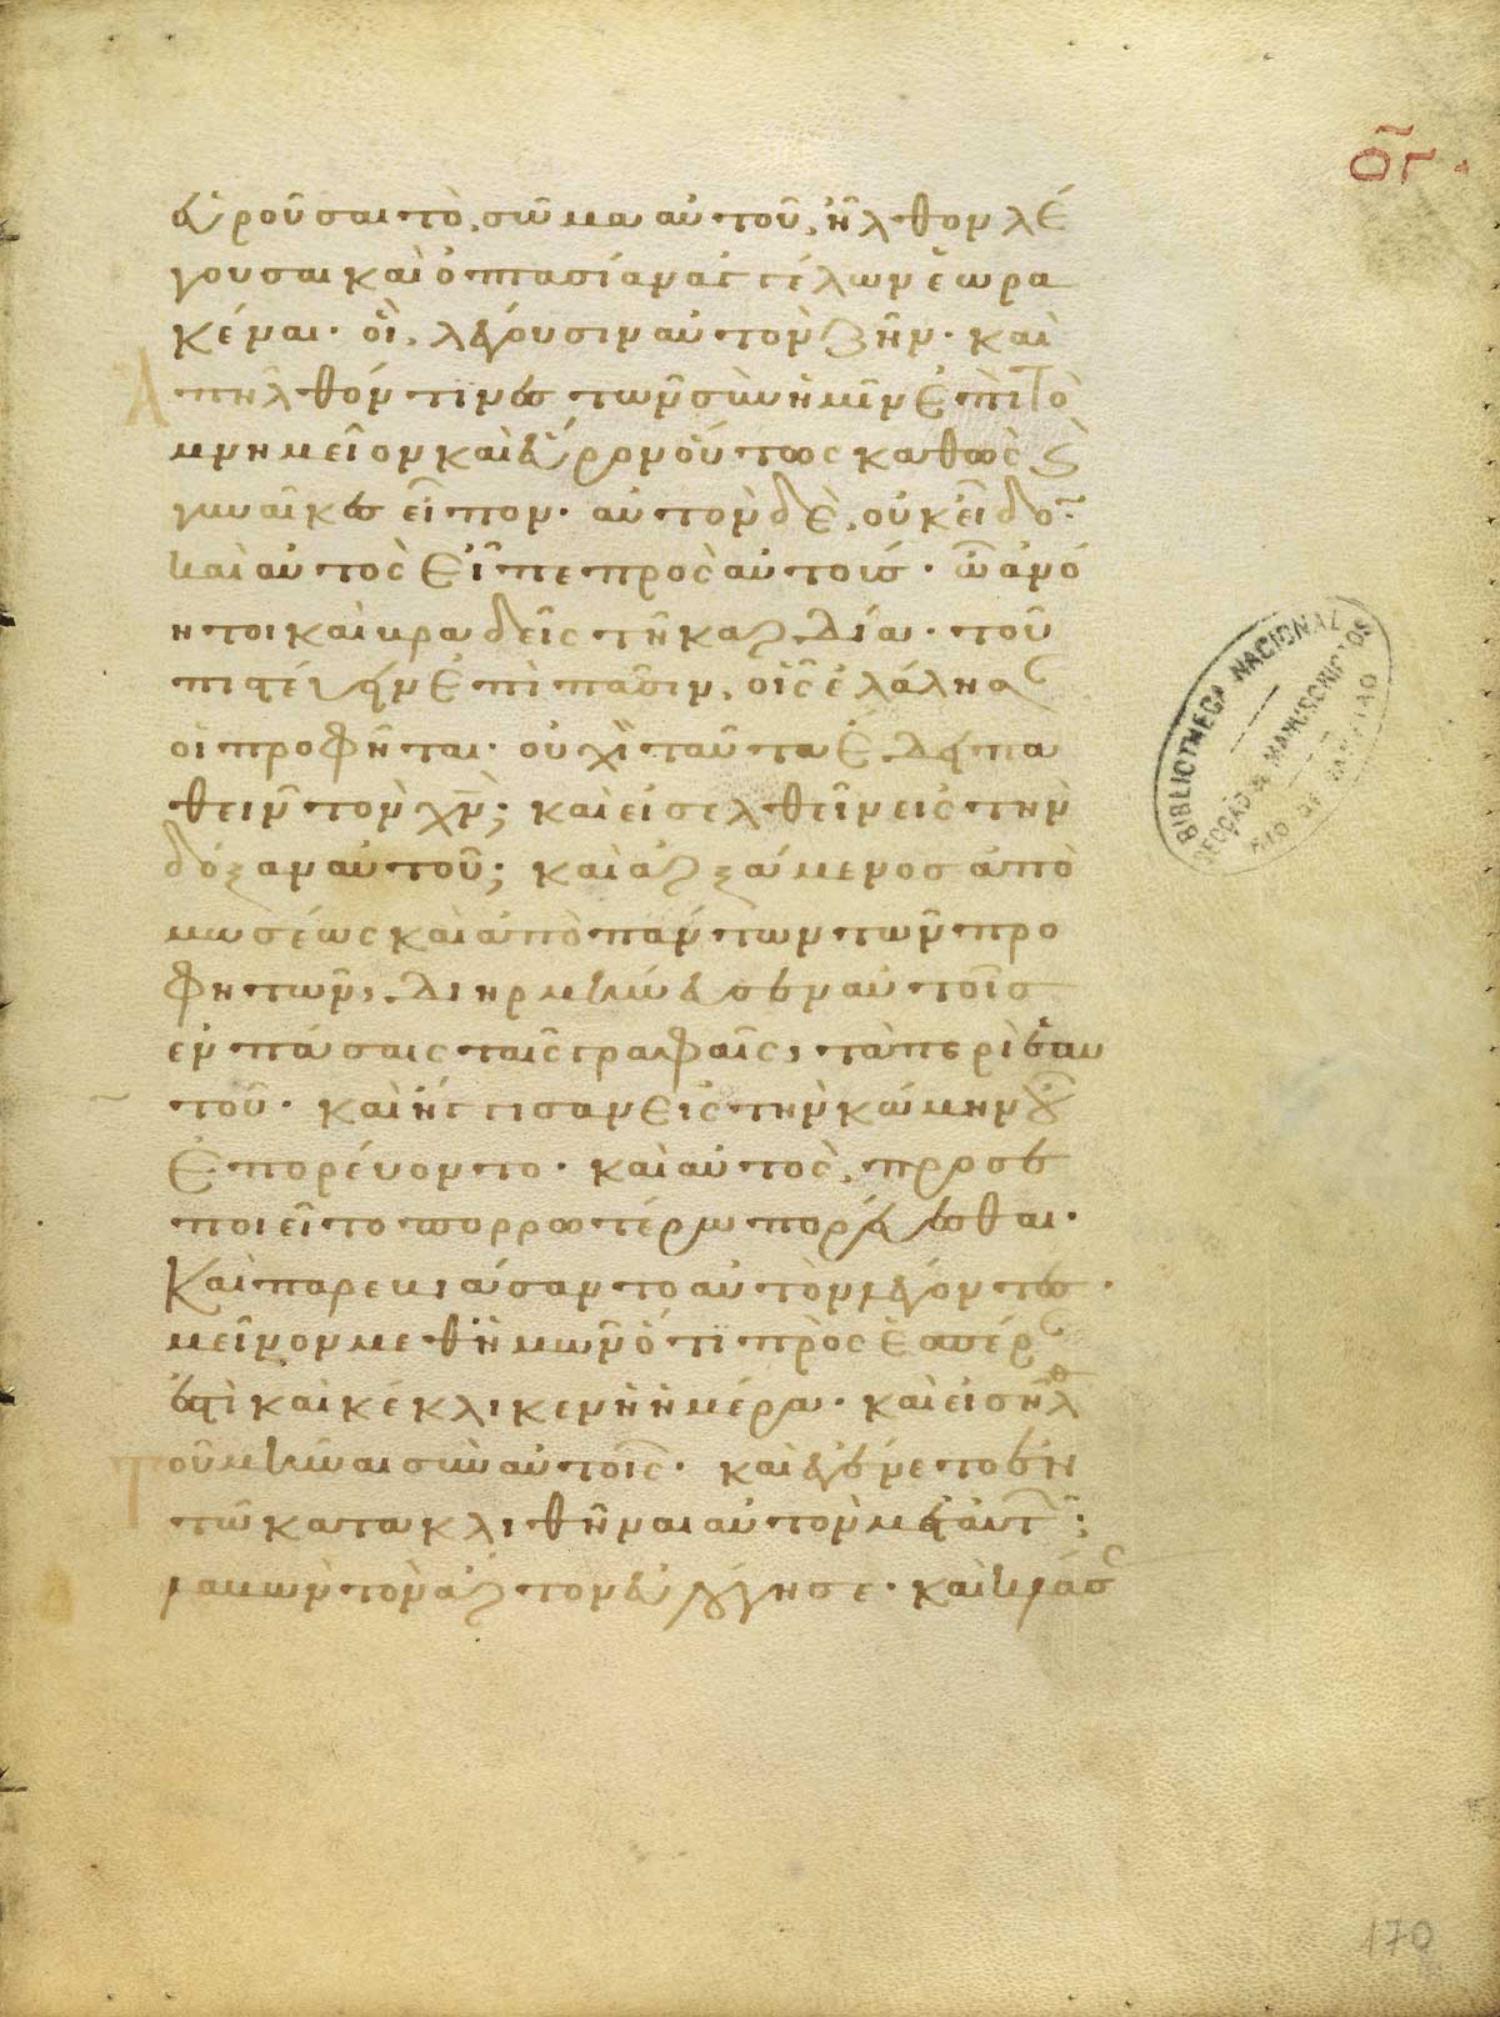 ογ·
εὑροῦσαι τὸ σῶμα αὐτοῦ, ἦλθον λέ
γουσαι καὶ ὀπτασίαν ἀγγέλων ἑωρα
κέναι· οἳ λέγουσιν αὐτὸν ζῆν· καὶ
ἀπῆλθόν τινες τῶν σὺν ἡμῖν ἐπὶ τὸ
μνημεῖον καὶ εὗρον οὕτως καθὼς ϗ
γυναῖκες εἶπον· αὐτὸν δὲ, οὐκ εἶδο̃·
καὶ αὐτὸς εἶπε πρὸς αὐτούς· ὦ ἀνό
ητοι καὶ βραδεῖς τῇ καρδία· τοῦ
πιστεύειν ἐπὶ πᾶσιν, οἷς ἐλάλησα
οἱ προφῆται· οὐχὶ ταῦτα ἔδει πα
θεῖν τὸν χν̄; καὶ εἰσελθεῖν εἰς τὴν
δόξαν αὐτοῦ; καὶ ἀρξάμενος ἀπὸ
μωσέως καὶ ἀπὸ πάντων τῶν προ
φητῶν, διηρμήνευεν αὐτοῖς
ἐν πάσαις ταῖς γραφαῖς, τὰ περὶ ἑαυ
τοῦ· καὶ ἤγγισαν εἰς τὴν κώμην οὗ
ἐπορεύοντο· καὶ αὐτὸς, προσε
ποιεῖτο πορρωτέρω πορεύεσθαι·
Καὶ παρεβιάσαντο αὐτὸν λέγοντες·
μεῖνον μεθ ἡμῶν ὅτι πρὸς ἑσπέρ
ἐστὶ καὶ κέκλικεν ἡ ἡμέρα· καὶ εἰσῆλθ
τοῦ μεῖναι σὺν αὐτοῖς· καὶ ἐγένετο ἐν
τῶ κατακλιθῆναι αὐτὸν μετ αὐτ·
λαβὼν τὸν ἄρτον εὐλόγησε· καὶ κλάσ
BIBLIOTHECA NACIONAL
SECÇÃO DE MANUSCRIPTOS
RIO DE JANEIRO
170